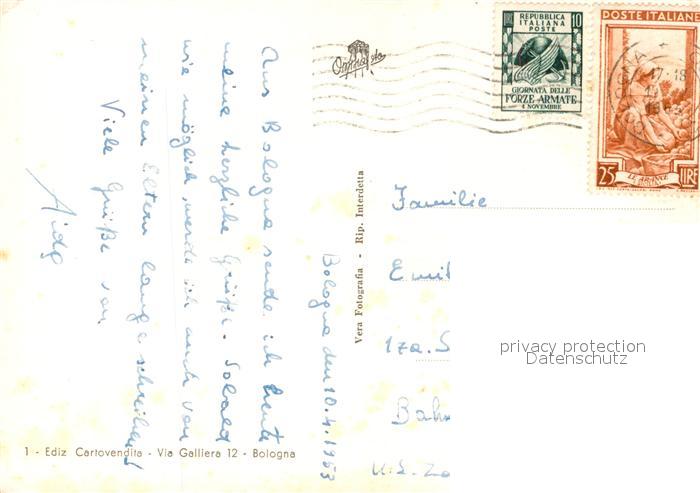 Bologna den 10.4.1953
Aus Bologna sende ich heute
meine herzliche Grüße. Sobald
wie möglich, werde ich auch von
meinen Eltern lange schreiben!
Viele Grüße von
Aida
REPUBBLICA
ITALIANA
POSTE
LIRE 10
GIORNATA DELLE
FORZE ARMATE
4 NOVEMBRE
POSTE ITALIANE
25 LIRE
17-18
Vera Fotografia - Rip. Interdetta
Familie
Emil
1 - Ediz Cartovendita - Via Galliera 12 - Bologna
privacy protection
Datenschutz